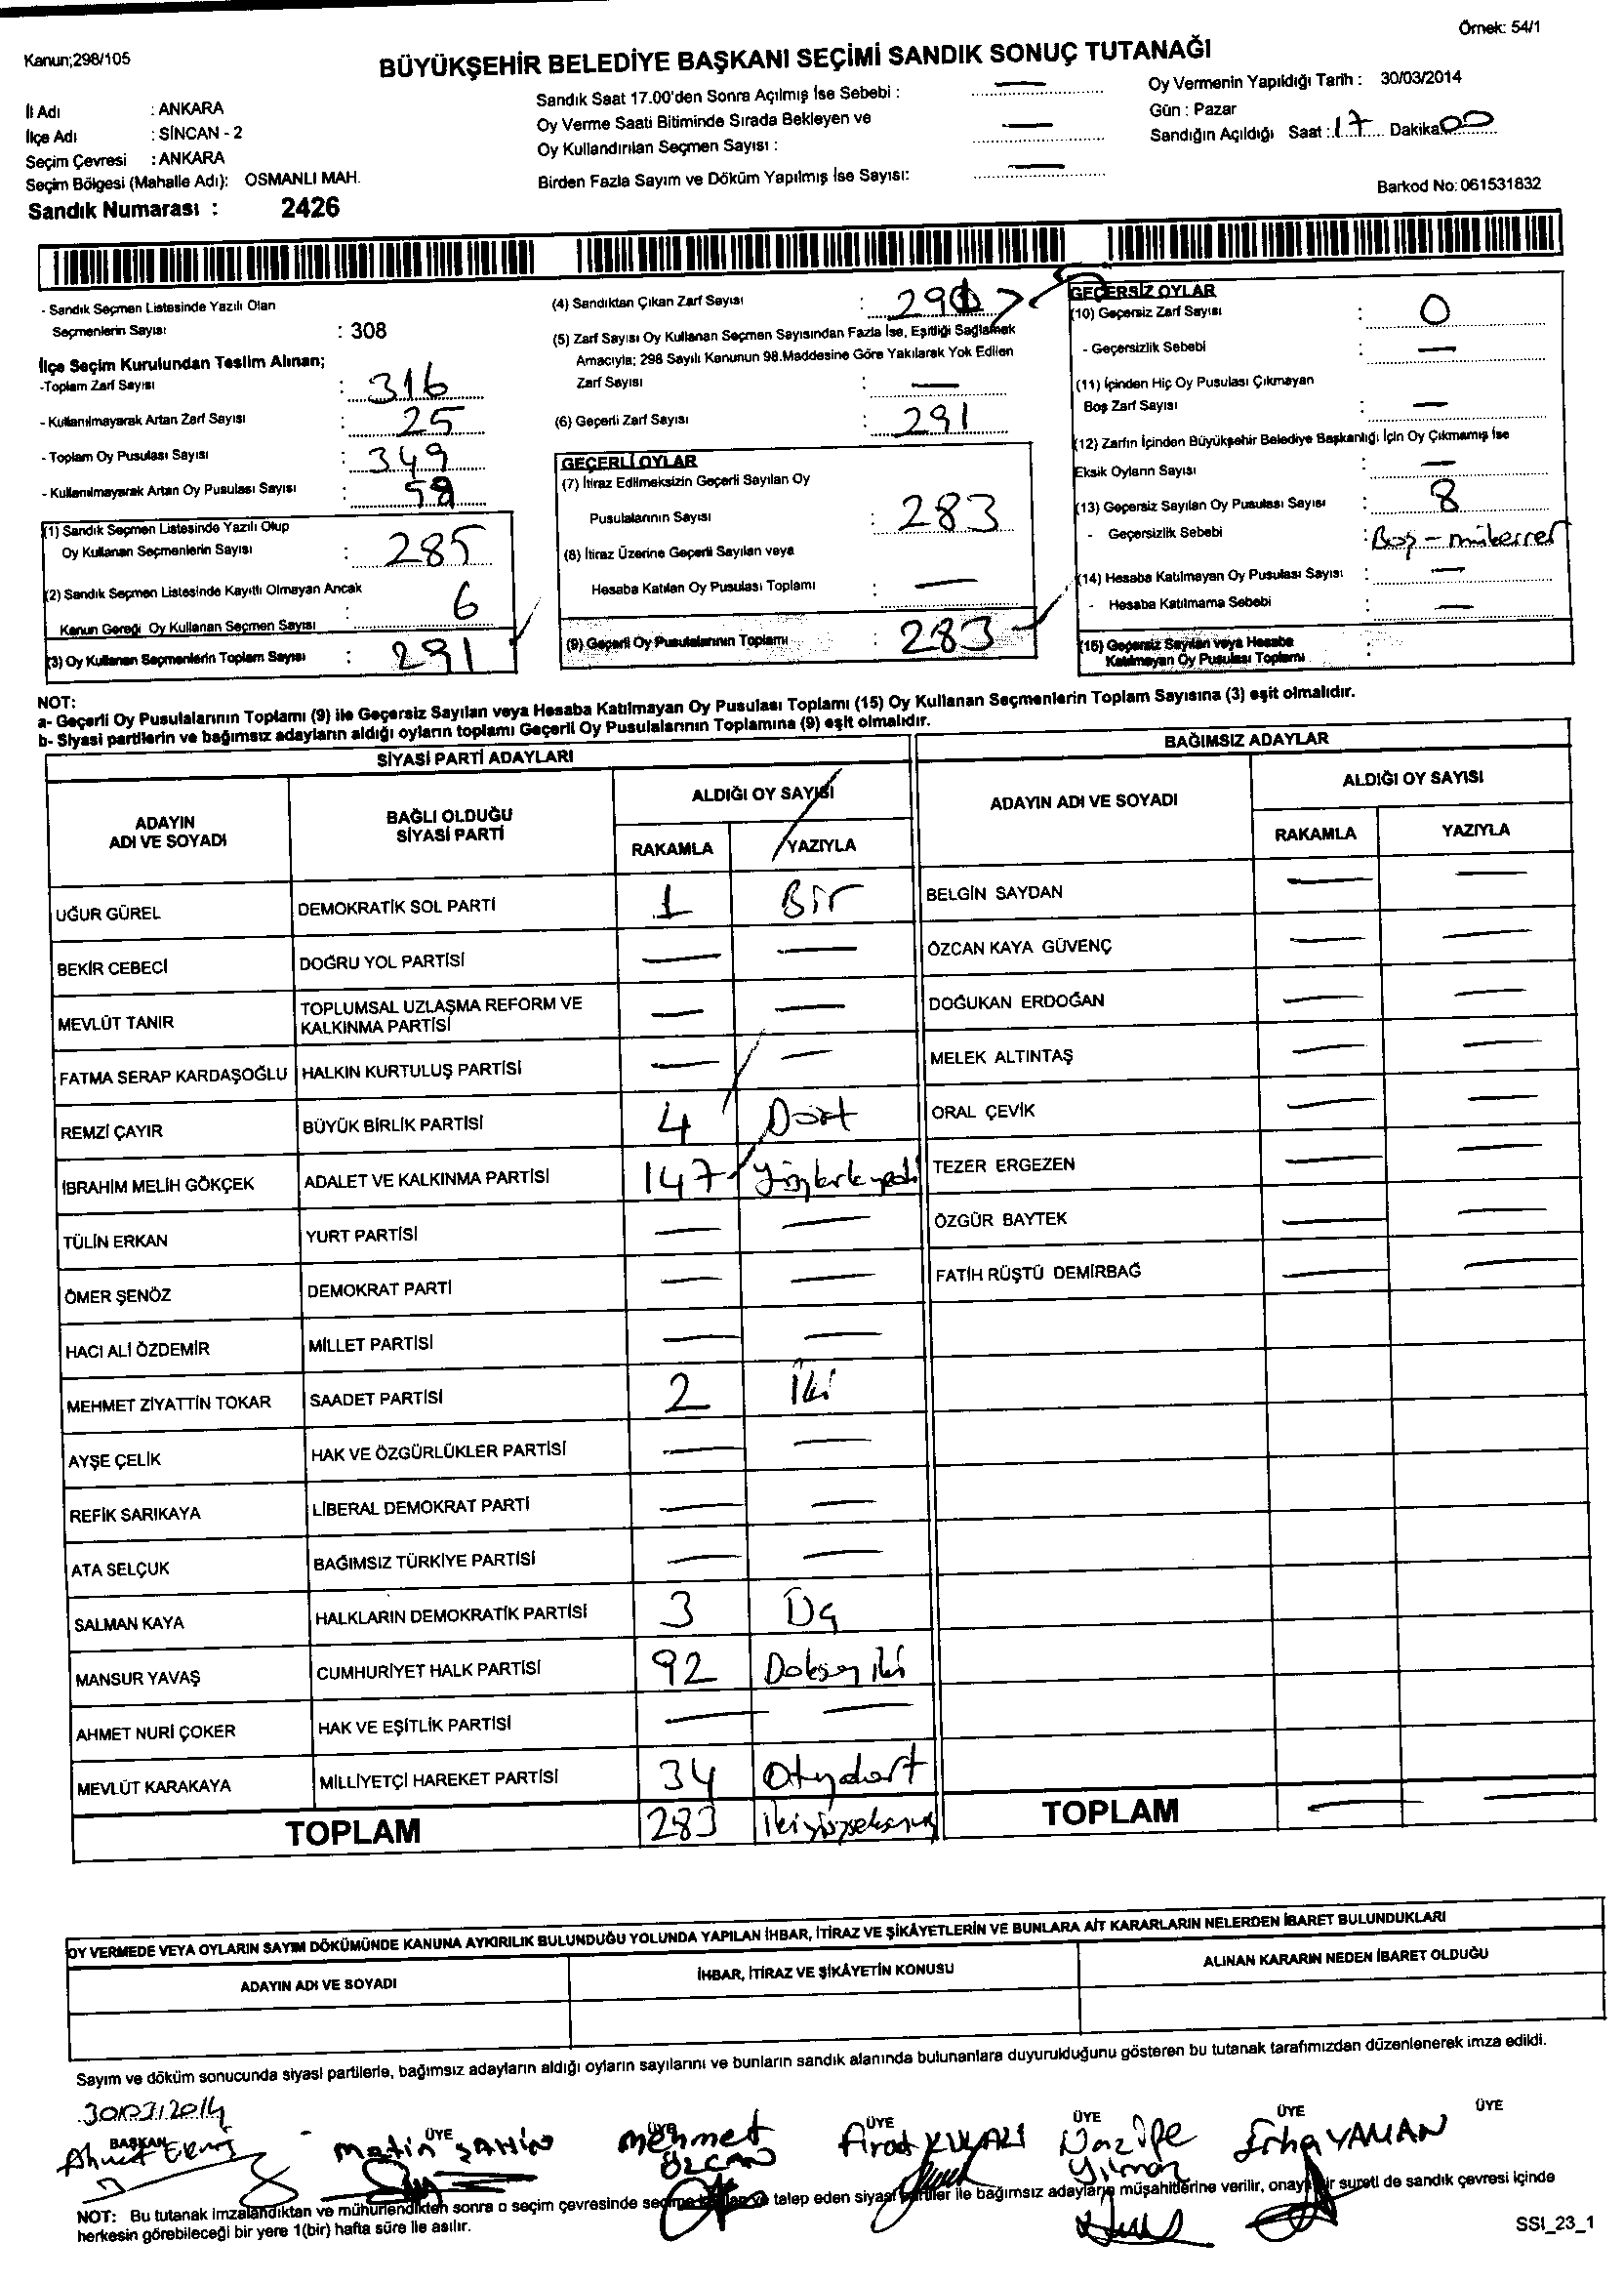 Örnek: 54/1
Kanun;298/105
BÜYÜKŞEHİR BELEDİYE BAŞKANI SEÇİMİ SANDIK SONUÇ TUTANAĞI
İl Adı : ANKARA
İlçe Adı : SİNCAN - 2
Seçim Çevresi : ANKARA
Seçim Bölgesi (Mahalle Adı): OSMANLI MAH.
Sandık Numarası : 2426
Sandık Saat 17.00'den Sonra Açılmış İse Sebebi : —
Oy Verme Saati Bitiminde Sırada Bekleyen ve
Oy Kullandırılan Seçmen Sayısı : —
Birden Fazla Sayım ve Döküm Yapılmış İse Sayısı: —
Oy Vermenin Yapıldığı Tarih : 30/03/2014
Gün : Pazar
Sandığın Açıldığı Saat : 17 Dakika 00
Barkod No: 061531832
- Sandık Seçmen Listesinde Yazılı Olan
Seçmenlerin Sayısı : 308
İlçe Seçim Kurulundan Teslim Alınan;
-Toplam Zarf Sayısı : 316
- Kullanılmayarak Artan Zarf Sayısı : 25
- Toplam Oy Pusulası Sayısı : 349
- Kullanılmayarak Artan Oy Pusulası Sayısı : 58
(1) Sandık Seçmen Listesinde Yazılı Olup
Oy Kullanan Seçmenlerin Sayısı : 285
(2) Sandık Seçmen Listesinde Kayıtlı Olmayan Ancak
Kanun Gereği Oy Kullanan Seçmen Sayısı : 6
(3) Oy Kullanan Seçmenlerin Toplam Sayısı : 291
(4) Sandıktan Çıkan Zarf Sayısı : 291
(5) Zarf Sayısı Oy Kullanan Seçmen Sayısından Fazla İse, Eşitliği Sağlamak
Amacıyla; 298 Sayılı Kanunun 98.Maddesine Göre Yakılarak Yok Edilen
Zarf Sayısı : —
(6) Geçerli Zarf Sayısı : 291
GEÇERLİ OYLAR
(7) İtiraz Edilmeksizin Geçerli Sayılan Oy
Pusulalarının Sayısı : 283
(8) İtiraz Üzerine Geçerli Sayılan veya
Hesaba Katılan Oy Pusulası Toplamı : —
(9) Geçerli Oy Pusulalarının Toplamı : 283
GEÇERSİZ OYLAR
(10) Geçersiz Zarf Sayısı : 0
- Geçersizlik Sebebi : —
(11) İçinden Hiç Oy Pusulası Çıkmayan
Boş Zarf Sayısı : —
(12) Zarfın İçinden Büyükşehir Belediye Başkanlığı İçin Oy Çıkmamış İse
Eksik Oyların Sayısı : —
(13) Geçersiz Sayılan Oy Pusulası Sayısı : 8
- Geçersizlik Sebebi : Boş - mükerrer
(14) Hesaba Katılmayan Oy Pusulası Sayısı : —
- Hesaba Katılmama Sebebi : —
(15) Geçersiz Sayılan veya Hesaba
Katılmayan Oy Pusulası Toplamı :
NOT:
a- Geçerli Oy Pusulalarının Toplamı (9) ile Geçersiz Sayılan veya Hesaba Katılmayan Oy Pusulası Toplamı (15) Oy Kullanan Seçmenlerin Toplam Sayısına (3) eşit olmalıdır.
b- Siyasi partilerin ve bağımsız adayların aldığı oyların toplamı Geçerli Oy Pusulalarının Toplamına (9) eşit olmalıdır.
SİYASİ PARTİ ADAYLARI
ADAYIN ADI VE SOYADI BAĞLI OLDUĞU SİYASİ PARTİ ALDIĞI OY SAYISI
RAKAMLA YAZIYLA
UĞUR GÜREL DEMOKRATİK SOL PARTİ 1 Bir
BEKİR CEBECİ DOĞRU YOL PARTİSİ — —
MEVLÜT TANIR TOPLUMSAL UZLAŞMA REFORM VE KALKINMA PARTİSİ — —
FATMA SERAP KARDAŞOĞLU HALKIN KURTULUŞ PARTİSİ — —
REMZİ ÇAYIR BÜYÜK BİRLİK PARTİSİ 4 Dört
İBRAHİM MELİH GÖKÇEK ADALET VE KALKINMA PARTİSİ 147 Yüzkırkyedi
TÜLİN ERKAN YURT PARTİSİ — —
ÖMER ŞENÖZ DEMOKRAT PARTİ — —
HACI ALİ ÖZDEMİR MİLLET PARTİSİ — —
MEHMET ZİYATTİN TOKAR SAADET PARTİSİ 2 İki
AYŞE ÇELİK HAK VE ÖZGÜRLÜKLER PARTİSİ — —
REFİK SARIKAYA LİBERAL DEMOKRAT PARTİ — —
ATA SELÇUK BAĞIMSIZ TÜRKİYE PARTİSİ — —
SALMAN KAYA HALKLARIN DEMOKRATİK PARTİSİ 3 Üç
MANSUR YAVAŞ CUMHURİYET HALK PARTİSİ 92 Doksan iki
AHMET NURİ ÇOKER HAK VE EŞİTLİK PARTİSİ — —
MEVLÜT KARAKAYA MİLLİYETÇİ HAREKET PARTİSİ 34 Otuzdört
TOPLAM 283 ikiyüzseksenüç
BAĞIMSIZ ADAYLAR
ADAYIN ADI VE SOYADI ALDIĞI OY SAYISI
RAKAMLA YAZIYLA
BELGİN SAYDAN — —
ÖZCAN KAYA GÜVENÇ — —
DOĞUKAN ERDOĞAN — —
MELEK ALTINTAŞ — —
ORAL ÇEVİK — —
TEZER ERGEZEN — —
ÖZGÜR BAYTEK — —
FATİH RÜŞTÜ DEMİRBAĞ — —
TOPLAM — —
OY VERMEDE VEYA OYLARIN SAYIM DÖKÜMÜNDE KANUNA AYKIRILIK BULUNDUĞU YOLUNDA YAPILAN İHBAR, İTİRAZ VE ŞİKÂYETLERİN VE BUNLARA AİT KARARLARIN NELERDEN İBARET BULUNDUKLARI
ADAYIN ADI VE SOYADI İHBAR, İTİRAZ VE ŞİKÂYETİN KONUSU ALINAN KARARIN NEDEN İBARET OLDUĞU
Sayım ve döküm sonucunda siyasi partilerle, bağımsız adayların aldığı oyların sayılarını ve bunların sandık alanında bulunanlara duyurulduğunu gösteren bu tutanak tarafımızdan düzenlenerek imza edildi.
30/03/2014
BAŞKAN ÜYE ÜYE ÜYE ÜYE ÜYE ÜYE
Ahmet Metin ŞAHİN Mehmet ÖZCAN Fırat Nazife Yılmaz YAMAN
NOT: Bu tutanak imzalandıktan ve mühürlendikten sonra o seçim çevresinde seçime katılan ve talep eden siyasi partiler ile bağımsız adayların müşahitlerine verilir, onaylı bir sureti de sandık çevresi içinde
herkesin görebileceği bir yere 1(bir) hafta süre ile asılır.
SSI_23_1